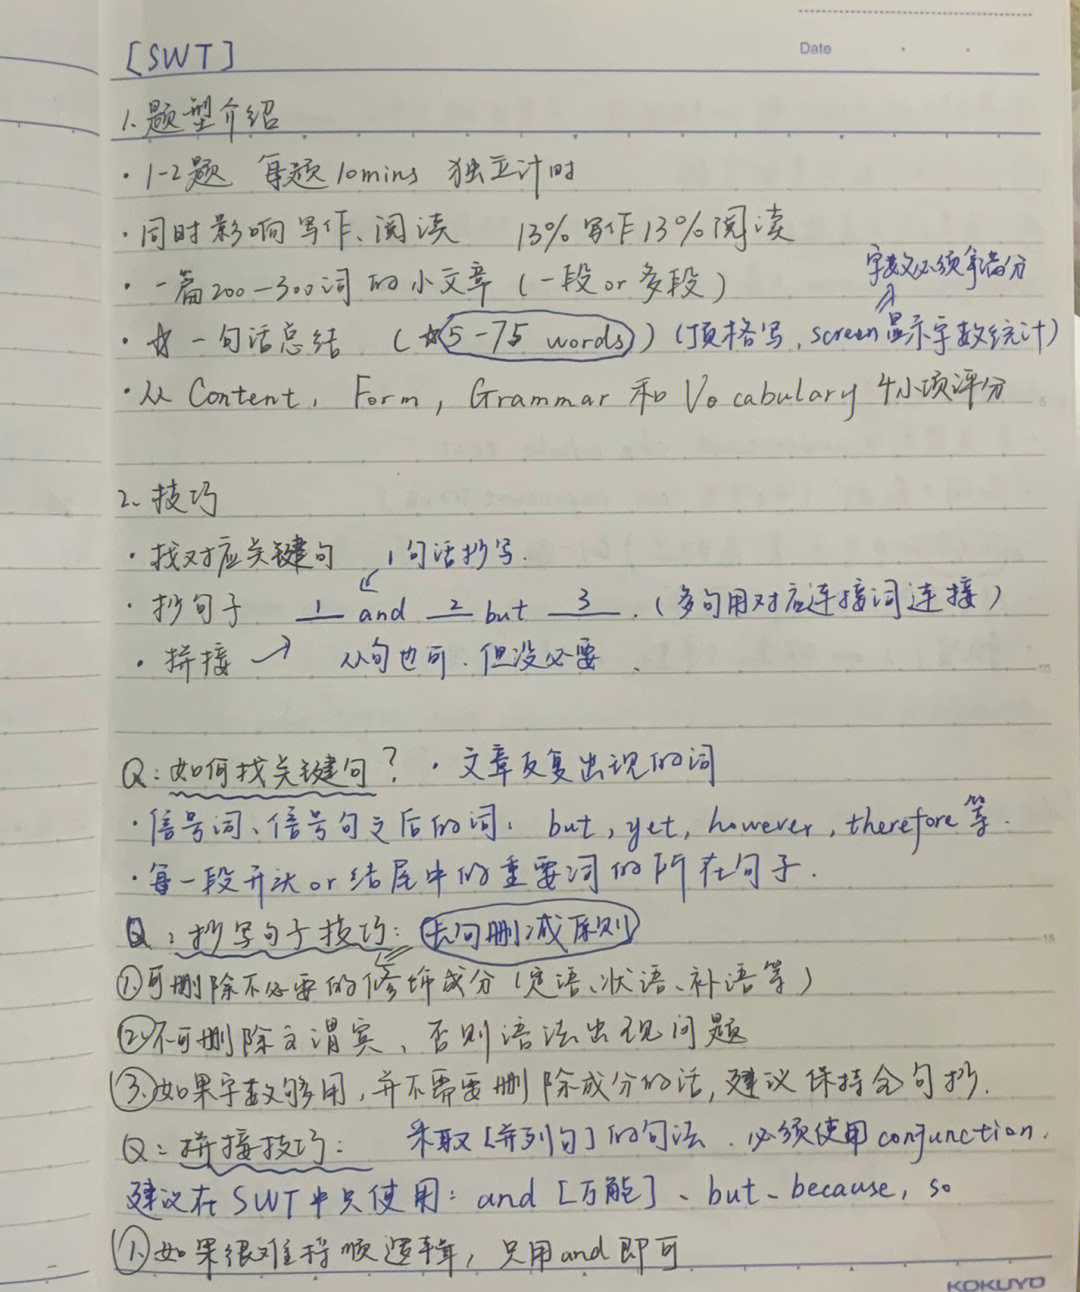 Date
[SWT]
1. 题型介绍
· 1-2题 每题10mins 独立计时
· 同时影响写作、阅读 13%写作13%阅读
字数必须拿满分
· 一篇200-300词的小文章(一段or多段)
· ☆ 一句话总结 (☆5-75 words)(顶格写, screen显示字数统计)
· 从 Content, Form, Grammar 和 Vocabulary 4小项评分
2. 技巧
· 找对应关键句 1句话抄写.
· 抄句子 1 and 2 but 3 .(多句用对应连接词连接)
· 拼接 → 从句也可.但没必要.
Q: 如何找关键句? · 文章反复出现的词
· 信号词、信号句之后的词: but, yet, however, therefore等.
· 每一段开头or结尾中的重要词的所在句子.
Q: 抄写句子技巧: 长句删减原则
①可删除不必要的修饰成分(定语、状语、补语等)
②不可删除主谓宾、否则语法出现问题
③如果字数够用,并不需要删除成分的话,建议保持全句抄.
Q: 拼接技巧: 采取[并列句]的句法.必须使用conjunction.
建议在SWT中只使用: and [万能]、but、because, so
①如果很难捋顺逻辑, 只用and即可
KOKUYO